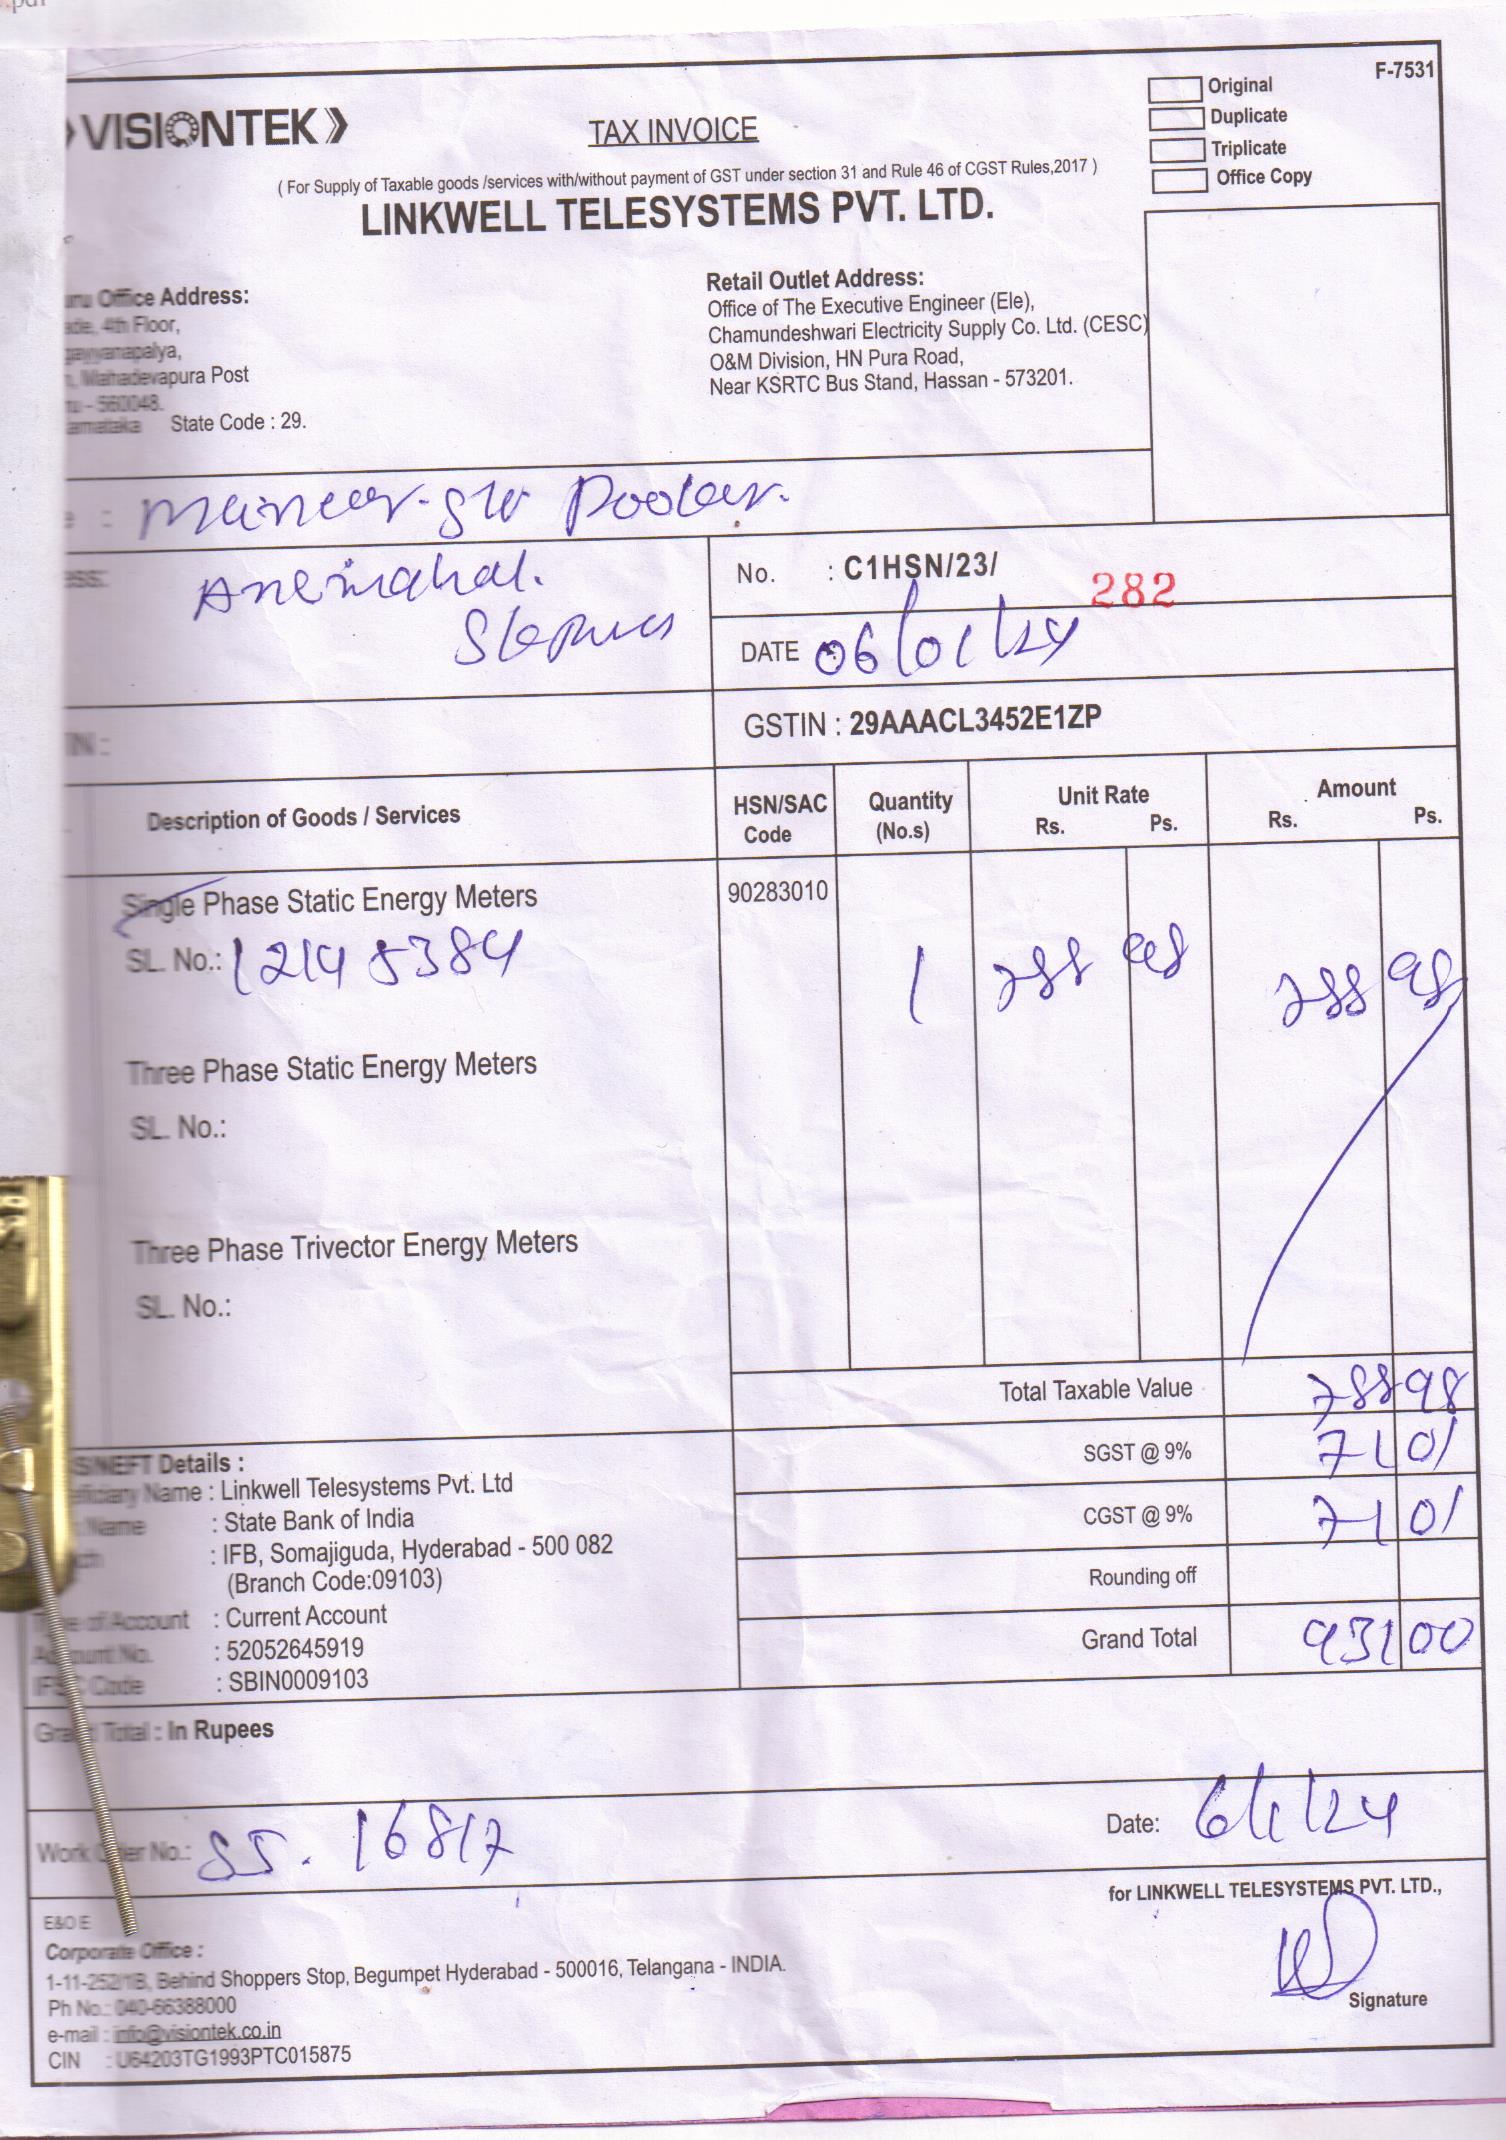 VISIONTEK
TAX INVOICE
F-7531
Original
Duplicate
Triplicate
Office Copy
( For Supply of Taxable goods /services with/without payment of GST under section 31 and Rule 46 of CGST Rules,2017 )
LINKWELL TELESYSTEMS PVT. LTD.
Office Address:
4th Floor,
Mahadevapura Post
- 560048.
State Code : 29.
Retail Outlet Address:
Office of The Executive Engineer (Ele),
Chamundeshwari Electricity Supply Co. Ltd. (CESC)
O&M Division, HN Pura Road,
Near KSRTC Bus Stand, Hassan - 573201.
No. : C1HSN/23/ 282
DATE : 06/01/24
GSTIN : 29AAACL3452E1ZP
Description of Goods / Services
HSN/SAC Code
Quantity (No.s)
Unit Rate
Rs. Ps.
Amount
Rs. Ps.
Single Phase Static Energy Meters 90283010
SL. No.: 12148384 1 788 98 788 98
Three Phase Static Energy Meters
SL. No.:
Three Phase Trivector Energy Meters
SL. No.:
Total Taxable Value 788 98
SGST @ 9% 71 01
CGST @ 9% 71 01
Rounding off
Grand Total 931 00
NEFT Details :
Name : Linkwell Telesystems Pvt. Ltd
Name : State Bank of India
: IFB, Somajiguda, Hyderabad - 500 082
(Branch Code:09103)
Type of Account : Current Account
Account No. : 52052645919
IFSC Code : SBIN0009103
Grand Total : In Rupees
Work Order No.: SS. 16817
Date: 6/1/24
for LINKWELL TELESYSTEMS PVT. LTD.,
Signature
E&O E
Corporate Office :
1-11-252/1B, Behind Shoppers Stop, Begumpet Hyderabad - 500016, Telangana - INDIA.
Ph No.: 040-66388000
e-mail : info@visiontek.co.in
CIN : U64203TG1993PTC015875